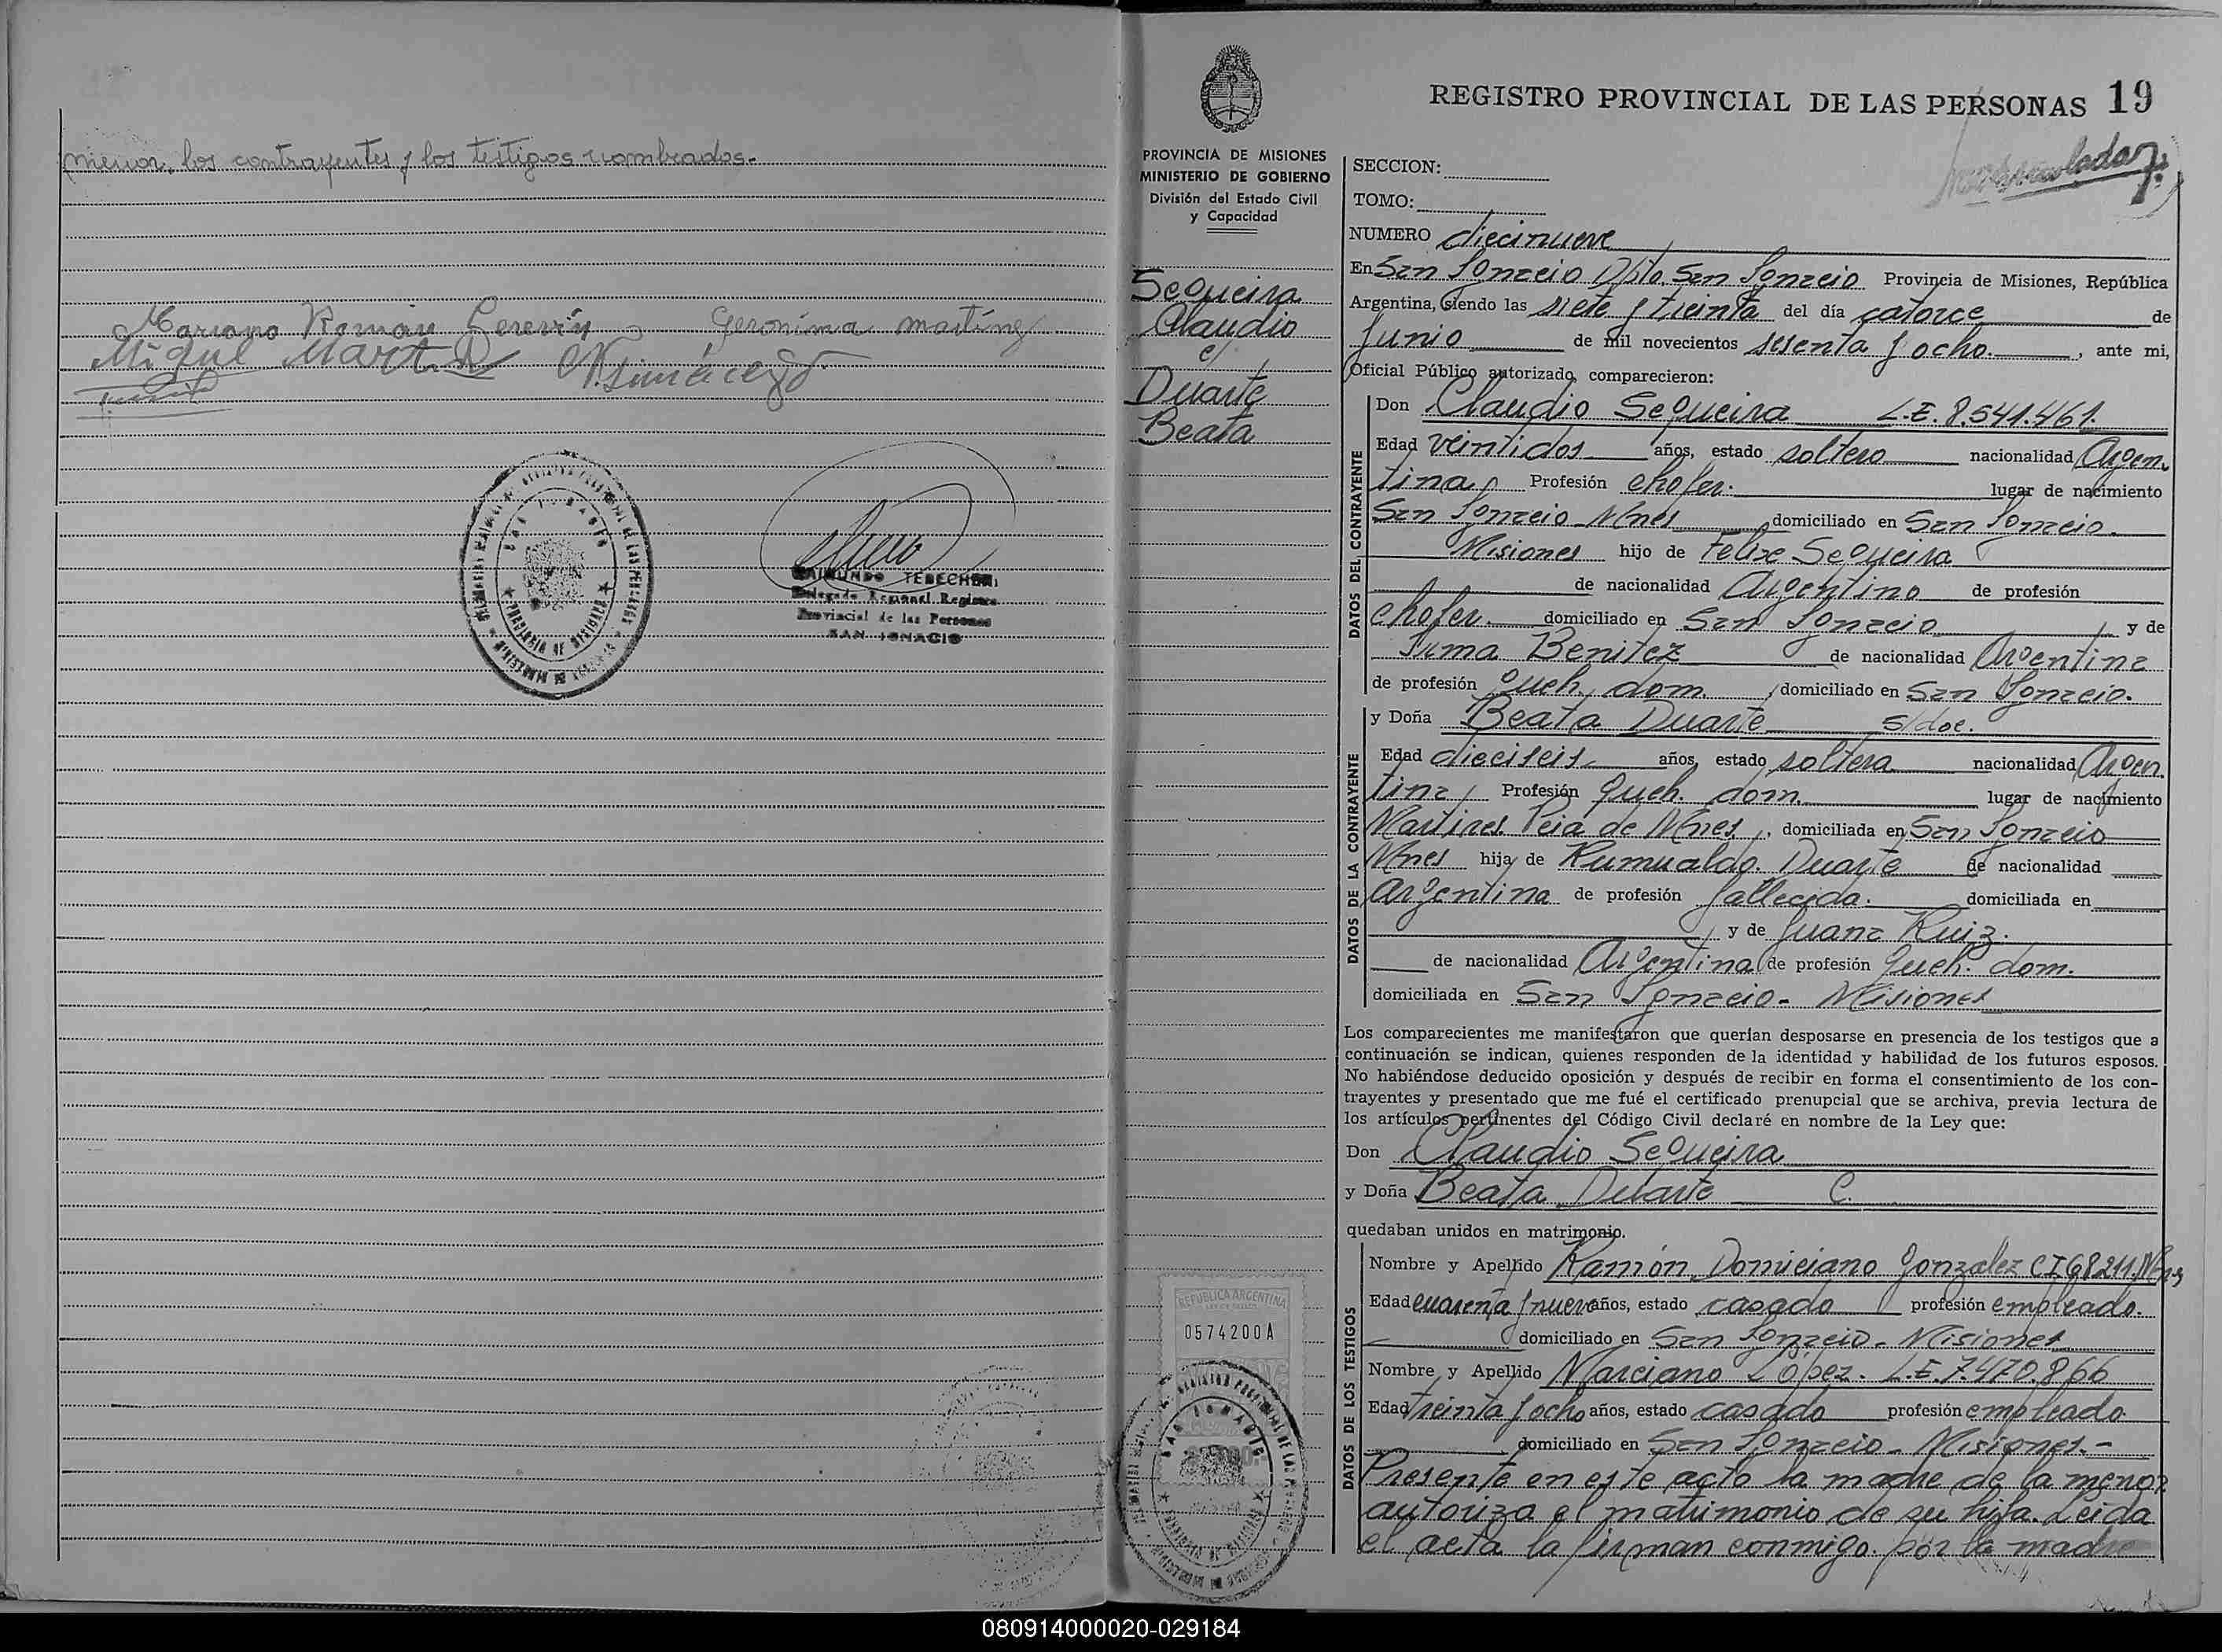 menor, los contrayentes y los testigos nombrados.-
Mariano Román Geronima Martinez
Miguel
RAIMUNDO
Delegado Regional Registro
Provincial de las Personas
SAN IGNACIO
REGISTRO PROVINCIAL DE LAS PERSONAS 19
PROVINCIA DE MISIONES
MINISTERIO DE GOBIERNO
División del Estado Civil
y Capacidad
Sequeira
Claudio
c/
Duarte
Beata
SECCION:
TOMO:
NUMERO diecinueve
En San Ignacio Dpto. San Ignacio Provincia de Misiones, República
Argentina, siendo las siete y treinta del día catorce de
Junio de mil novecientos sesenta y ocho. , ante mi,
Oficial Público autorizado, comparecieron:
DATOS DEL CONTRAYENTE
Don Claudio Sequeira L.E. 8.541.461.
Edad veintidos años, estado soltero nacionalidad Argen
tina, Profesión chofer. lugar de nacimiento
San Ignacio Mnes domiciliado en San Ignacio.
Misiones hijo de Felixe Sequeira
de nacionalidad Argentino de profesión
chofer. domiciliado en San Ignacio y de
Benitez de nacionalidad Argentina
de profesión queh. dom. domiciliado en San Ignacio.
DATOS DE LA CONTRAYENTE
y Doña Beata Duarte s/doc.
Edad dieciseis años, estado soltera nacionalidad Argen.
tina, Profesión queh. dom. lugar de nacimiento
Martires Pcia de Mnes, domiciliada en San Ignacio
Mnes hija de Rumualdo Duarte de nacionalidad
Argentina de profesión fallecido. domiciliada en
y de Juana Ruiz.
de nacionalidad Argentina de profesión queh. dom.
domiciliada en San Ignacio - Misiones
Los comparecientes me manifestaron que querían desposarse en presencia de los testigos que a
continuación se indican, quienes responden de la identidad y habilidad de los futuros esposos.
No habiéndose deducido oposición y después de recibir en forma el consentimiento de los con-
trayentes y presentado que me fué el certificado prenupcial que se archiva, previa lectura de
los artículos pertinentes del Código Civil declaré en nombre de la Ley que:
Don Claudio Sequeira
y Doña Beata Duarte
quedaban unidos en matrimonio.
DATOS DE LOS TESTIGOS
Nombre y Apellido Ramón Domiciano Gonzalez CI 68211 Mnes
Edad cuarenta y nueve años, estado casado profesión empleado.
domiciliado en San Ignacio - Misiones
Nombre y Apellido Marciano López. L.E. 7.470.866
Edad treinta y ocho años, estado casado profesión empleado
domiciliado en San Ignacio - Misiones.-
Presente en este acto la madre de la menor
autoriza el matrimonio de su hija. Leida
el acta la firman conmigo. por la madre
REPUBLICA ARGENTINA
0574200A
080914000020-029184